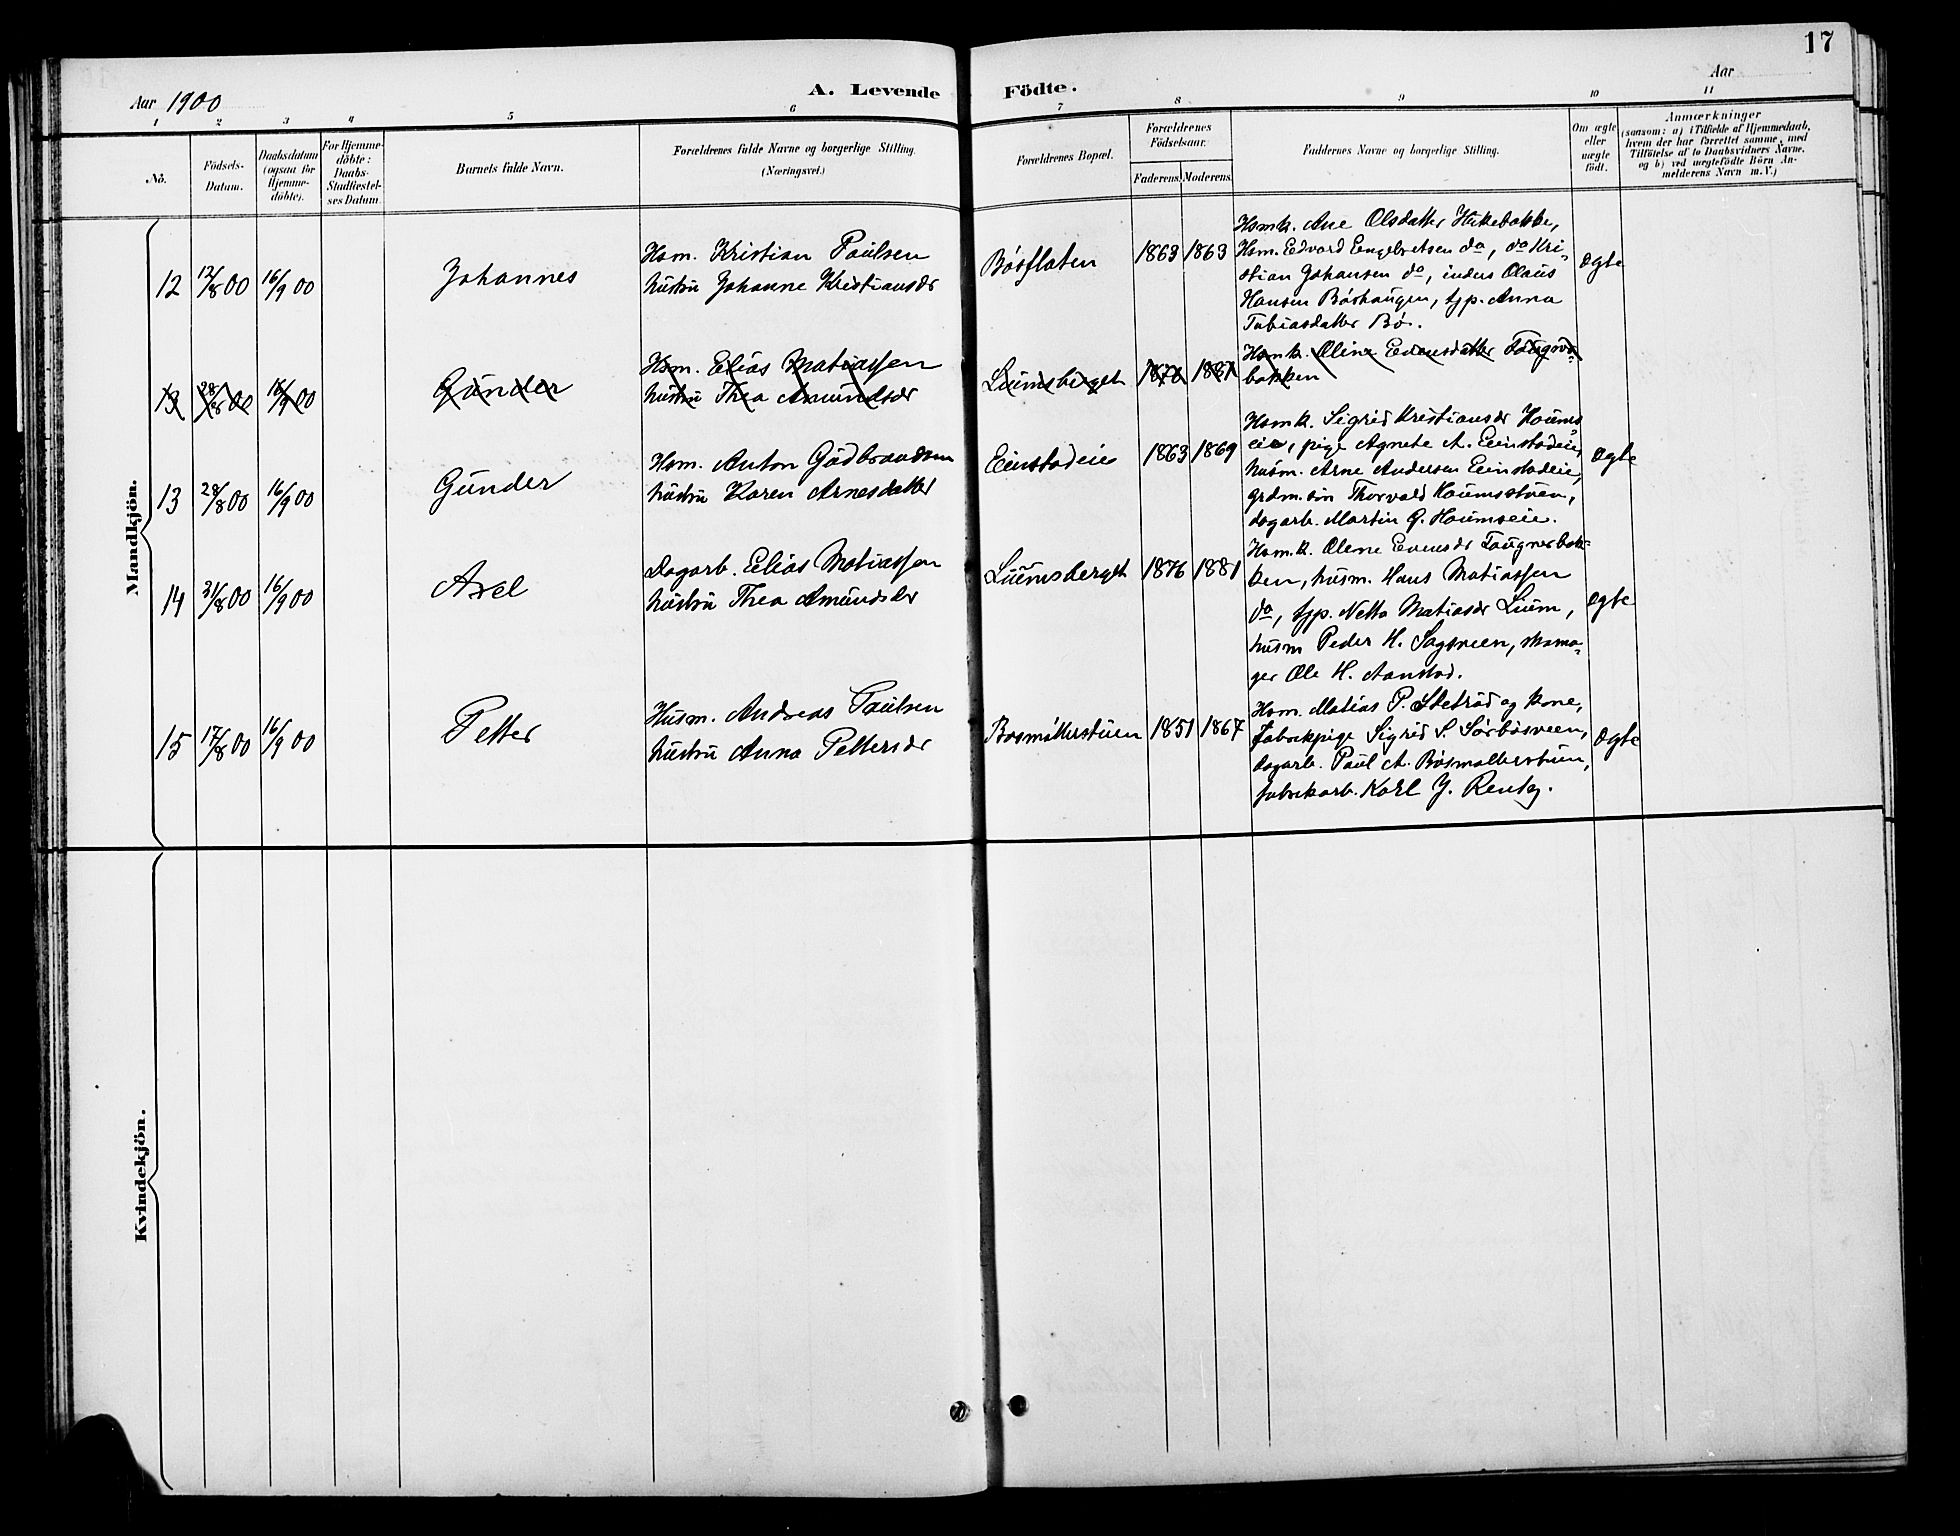 17
Aar 1900
A. Levende Födte.
Aar
1 2 3 4 5 6 7 8 9 10 11
No.
Födsels-
Datum.
Daabsdatum
(ogsaa for
Hjemme-
döbte).
For Hjemme-
döbte:
Daabs-
Stadfæstel-
ses Datum.
Barnets fulde Navn.
Forældrenes fulde Navne og borgerlige Stilling.
(Næringsvei.)
Forældrenes Bopæl.
Forældrenes
Födselsaar.
Faderens. Moderens.
Faddernes Navne og borgerlige Stilling.
Om ægte
eller
uægte
födt.
Anmærkninger
(saasom: a) i Tilfælde af Hjemmedaab,
hvem der har forrettet samme, med
Tilföielse af to Daabsvidners Navne,
og b) ved uægtefödte Börn An-
melderens Navn m. V.)
Mandkjön.
12 12/8 00 16/9 00
Johannes
Hsm. Kristian Paulsen
hustru Johanne Kristiansdr
Bøsflaten
1863 1863
Hsmk. Ane Olsdatter Hukebakke,
Hsm. Edvard Engebretsen do, do Kri-
stian Johansen do, inders Olaus
Hansen Bøshaugen, tjp. Anna
Tobiasdatter Bø.
ægte
13 28/8 00 16/9 00
Gunder
Hsm. Elias Matiassen
hustru Thea Amundsdr
Liumsberget
1876 1881
Hsmk. Oline Evensdatter
bakken
13 28/8 00 16/9 00
Gunder
Hsm. Anton Gudbrandsen
hustru Karen Arnesdatter
Eenstadeie
1863 1869
Hsmk. Sigrid Kristiansdr Houms-
eie, pige Agnete A. Eenstadeie,
husm. Arne Andersen Eenstadeie,
grdm. søn Thorvald Houmsstuen,
dagarb. Martin G. Houmseie.
ægte
14 31/8 00 16/9 00
Axel
Dagarb. Elias Matiassen
hustru Thea Amundsdr
Liumsberget
1876 1881
Hsm.k. Oline Evensdr Taugnerbak-
ken, husm. Hans Matiassen
do, tjp. Netta Matiasdr Lium,
husm Peder H. Sagveen, skoma-
ger Ole H. Aanstad.
ægte
15 17/8 00 16/9 00
Petter
Husm. Andreas Paulsen
hustru Anna Pettersdr
Bøsmøllerstuen
1851 1867
Hsm. Matias P. og kone,
fabrikpige Sigrid S. Sørbøsveen,
dagarb. Paul A. Bøsmøllerstuen,
fabrikarb. Karl J.
ægte
Kvindekjön.